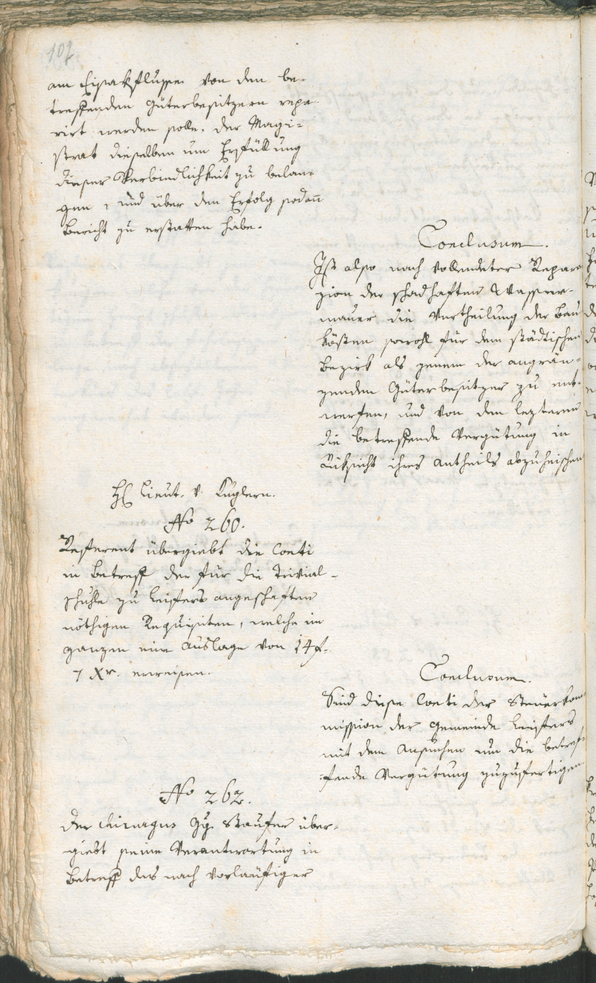 102.
am Eisakfluße von den be-
treffenden Güterbesitzern repa-
rirt werden solle. der Magi-
strat dieselben um Erfüllung
dieser Verbindlichkeit zu belan-
gen, und über den Erfolg sodann
Bericht zu erstatten habe.
Conclusum.
Ist also nach vollendeter Repara-
zion der schadhaften Wasser-
mauer die Vertheilung der Bau
kösten sowohl für dem städtischen
Bezirk als jenem der angrän-
zenden Güterbesitzer zu ent-
werfen, und von den leztern
die betreffende Vergütung in
Rüksicht ihres Antheils abzuheischen
H. Lieut. v Kuglern.
No 260.
Referent übergiebt die Conti
in Betreff der für die Trivial-
schuhle zu Leifers angeschaften
nöthigen Requisiten, welche im
ganzen eine Auslage von 14 f.
7 Xr. erweisen.
Conclusum.
Sind diese Conti der Steuerkom
mission der Gemeinde Leifers
mit dem Ansuchen um die betref-
fende Vergütung zuzufertigen
No 262.
Der Chirurgus Gg. Staufer über-
giebt seine Verantwortung in
Betreff des nach vorläufiger